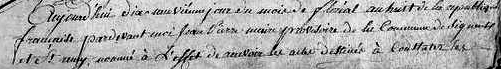 aujourd'hui dix neuvieme jour du mois de floréal an huit de la republique
française pardevant moi Jean Pierre maire provisoire de la Commune de
et St remy nommé à l'effet de recevoir les actes destinés à Constater les